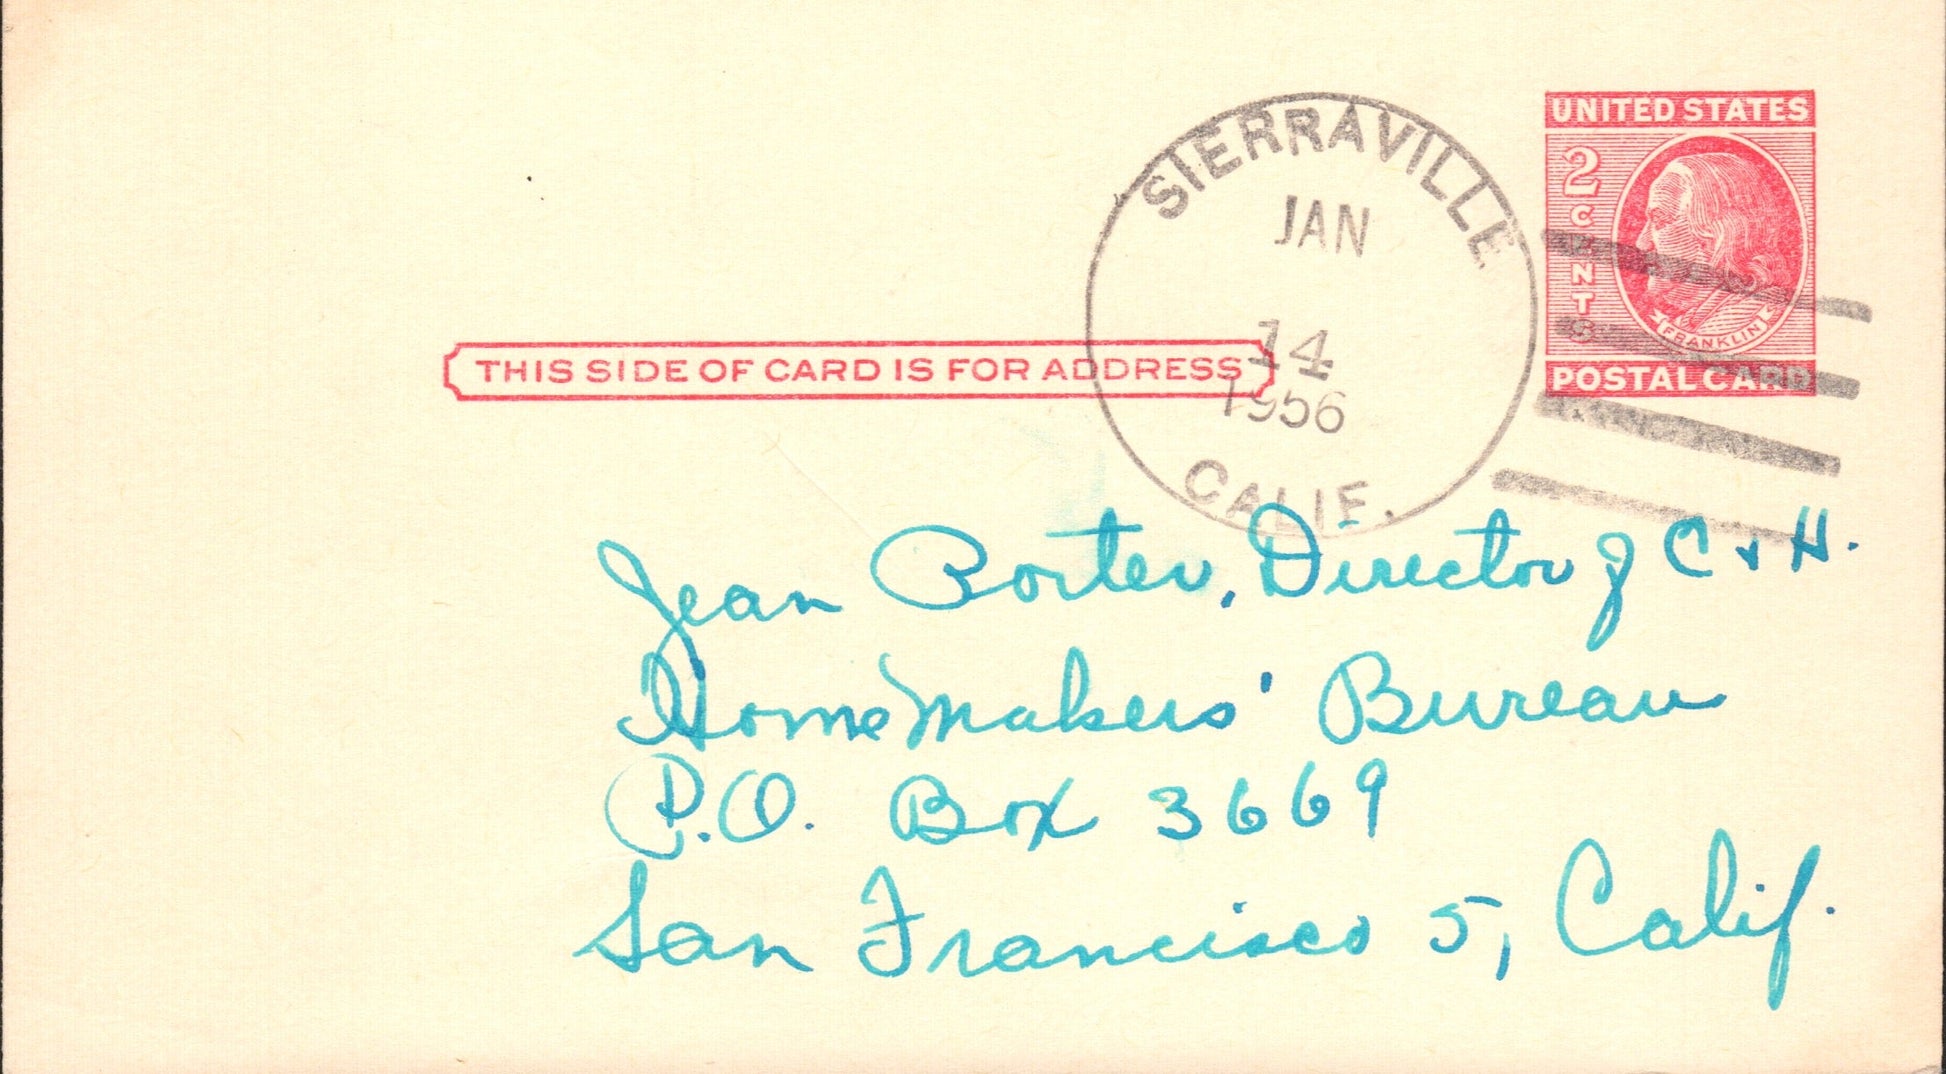 SIERRAVILLE
JAN
14
1956
CALIF.
UNITED STATES
2
CENTS
FRANKLIN
POSTAL CARD
THIS SIDE OF CARD IS FOR ADDRESS
Jean Porter, Director of C & H.
HomeMakers' Bureau
P.O. Box 3669
San Francisco 5, Calif.